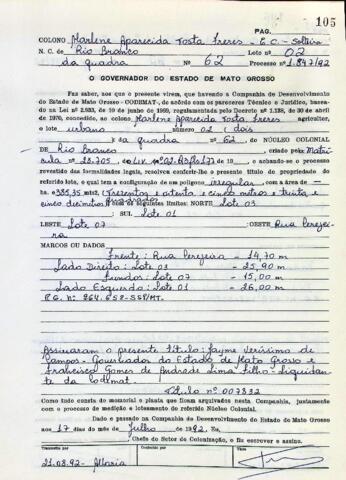 PAG. 105
COLONO Marlene Aparecida Tosta Freres - E.C. - Solteira
N. C. de Rio Branco Lote nº 02
da quadra Nº 62 Processo nº 1.847/92
O GOVERNADOR DO ESTADO DE MATO GROSSO
Faz saber, aos que o presente virem, que havendo a Companhia de Desenvolvimento
do Estado de Mato Grosso - CODEMAT-, de acôrdo com os pareceres Técnico e Jurídico, basea-
da na Lei nº 2.583, de 19 de junho de 1969, regulamentada pelo Decreto nº 1.138, de 30 de abril
de 1970, concedido, ao colono Marlene Aparecida Tosta Freres agricultor,
o lote urbano número 02 (dois
) da quadra nº 62 do NÚCLEO COLONIAL
DE Rio Branco, criado pela Matrí
cula nº 18.705 do Liv. nº 02
e achando-se o processo
revestido das formalidades legais, resolveu conferir-lhe o presente título de propriedade do
referido lote, o qual tem a configuração de um polígono irregular, com a área de
ha. e 385,35 mts2 (Trezentos e oitenta e cinco metros e trinta e
cinco decímetros quadrados) de seguintes limites: NORTE Lote 03
SUL Lote 01
LESTE Lote 07 OESTE Rua Cerejei
ra
MARCOS OU DADOS
Frente: Rua Cerejeira - 14,70 m
Lado Direito: Lote 03 - 25,90 m
Fundos: Lote 07 - 15,00 m
Lado Esquerdo: Lote 01 - 26,00 m
R.G. Nº 264.658-SSP/MT.
Assinaram o presente Título: Jayme Veríssimo de
Campos - Governador do Estado de Mato Grosso e
Francisco Gomes de Andrade Lima Filho - Liquidan
te da Codemat
Título nº 007832
Como tudo consta do memorial e planta que ficam arquivados nesta Companhia, juntamente
com o processo de medição e loteamento do referido Núcleo Colonial.
Dado e passado na Companhia de Desenvolvimento do Estado de Mato Grosso
aos 17 dias do mês de Julho de 1992. Eu,
Chefe do Setor de Colonização, o fiz escrever e assino.
Transcrito por Conferido por Visto:
21.08.92